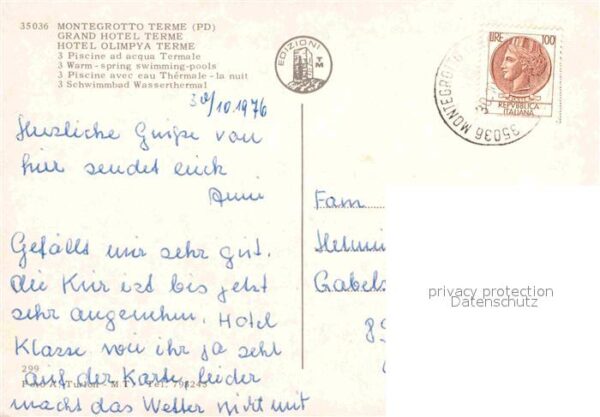 35036 MONTEGROTTO TERME (PD)
GRAND HOTEL TERME
HOTEL OLIMPYA TERME
3 Piscine ad acqua Termale
3 Warm-spring swimming-pools
3 Piscine avec eau Thérmale - la nuit
3 Schwimmbad Wasserthermal
EDIZIONI
LIRE 100
REPVBBLICA
ITALIANA
35036 MONTEGRO
10.1976
Herzliche Grüße von
hier sendet euch
Anni
Gefällts mir sehr gut.
die Kur ist bis jetzt
sehr angenehm. Hotel
Klasse wie ihr ja seht
auf der Karte, leider
macht das Wetter nicht mit
Fam
Helmu
Gabels
privacy protection
Datenschutz
299